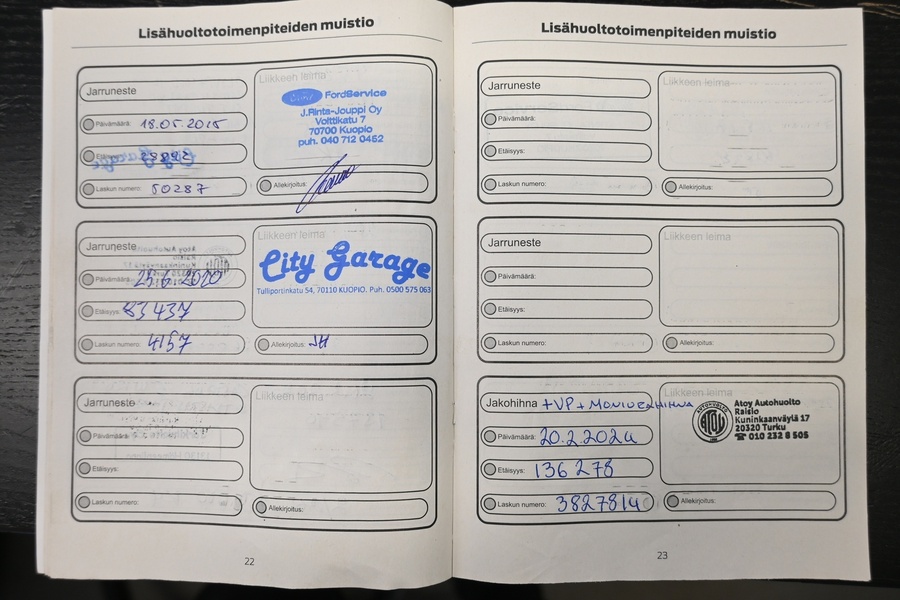 Lisähuoltotoimenpiteiden muistio
Jarruneste
Liikkeen leima
Ford FordService
J.Rinta-Jouppi Oy
Volttikatu 7
70700 Kuopio
puh. 040 712 0462
Päivämäärä: 18.05.2015
Etäisyys:
Laskun numero: 50287
Allekirjoitus:
Jarruneste
Liikkeen leima
City Garage
Tulliportinkatu 54, 70110 KUOPIO. Puh. 0500 575 063
Päivämäärä: 25.6.2020
Etäisyys: 83437
Laskun numero: 4157
Allekirjoitus: JH
Jarruneste
Liikkeen leima
Päivämäärä:
Etäisyys:
Laskun numero:
Allekirjoitus:
22
Lisähuoltotoimenpiteiden muistio
Jarruneste
Liikkeen leima
Päivämäärä:
Etäisyys:
Laskun numero:
Allekirjoitus:
Jarruneste
Liikkeen leima
Päivämäärä:
Etäisyys:
Laskun numero:
Allekirjoitus:
Jakohihna +VP+MONIURAHIHNA
Liikkeen leima
AUTOHUOLTO
ATOY
Atoy Autohuolto
Raisio
Kuninkaanväylä 17
20320 Turku
☎ 010 232 8 505
Päivämäärä: 20.2.2024
Etäisyys: 136278
Laskun numero: 3827814
Allekirjoitus:
23